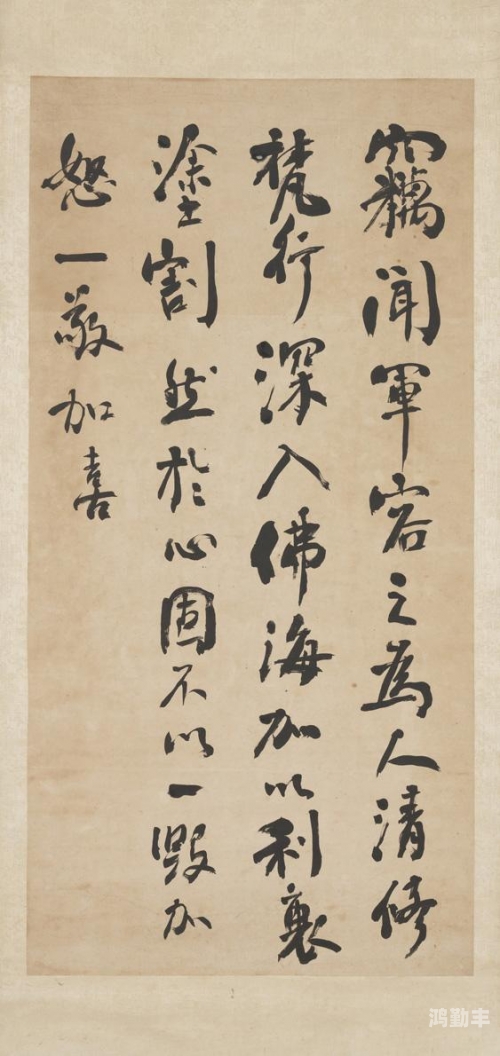 竊聞軍容之為人清修
梵行深入佛海加以利衰
塗割然於心固不以一毀加
怒一敬加喜
鸿勤丰